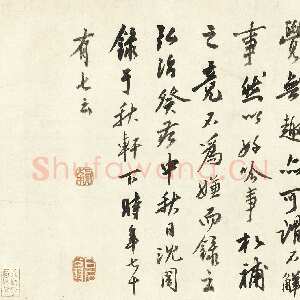 覺無趣亦可謂不解
事然以好吟事於補
之竟不爲嫌而錄之
弘治癸亥中秋日沈周
錄于秋軒下時年七十
有七云
Shufawang.CN